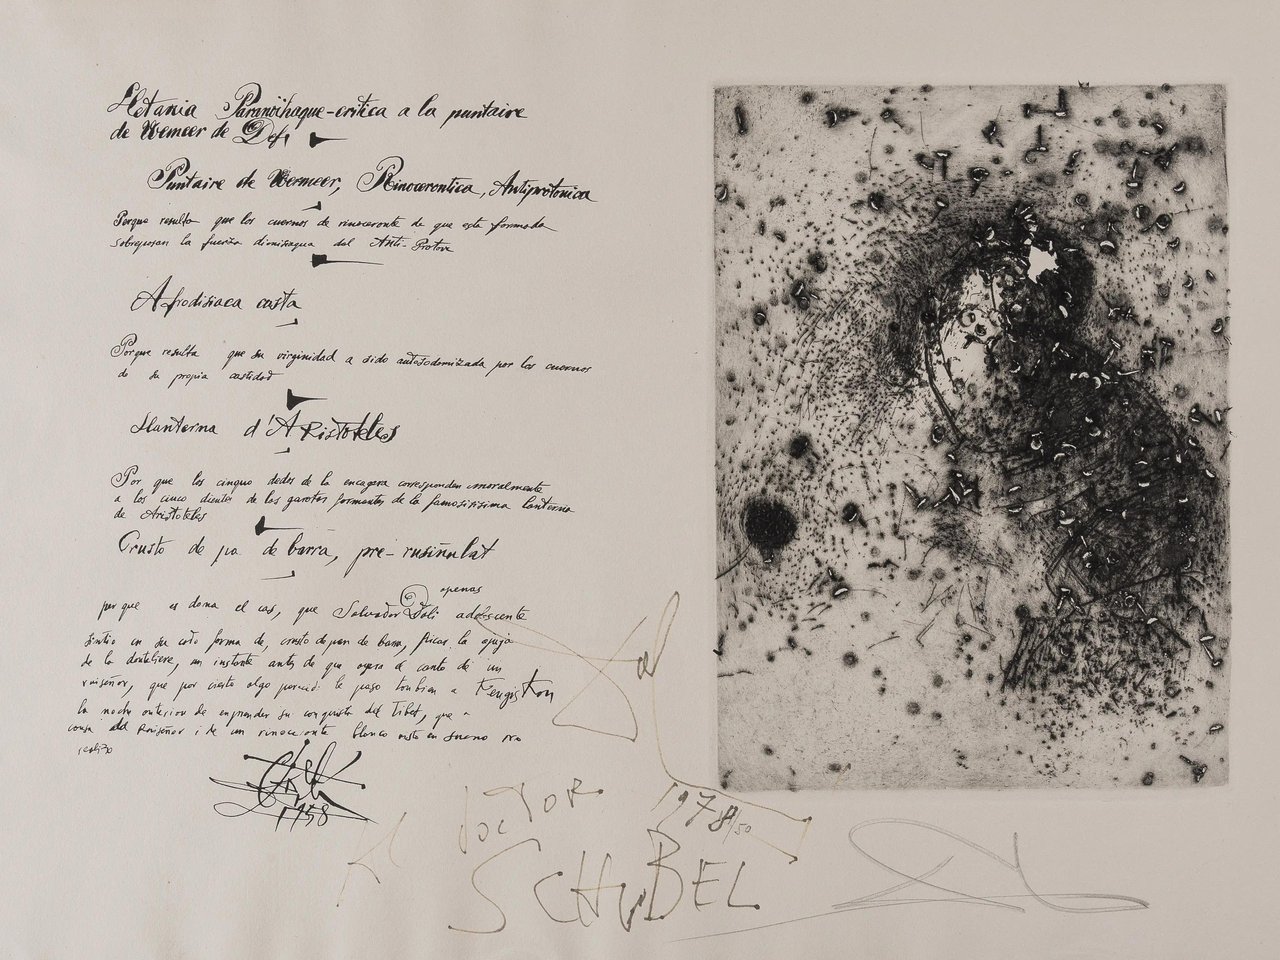 Lletania Paranöihaque-critica a la puntaire
de Vermeer de Delf
Puntaire de Vermeer, Rinocerontica, Antiprotonica
Porque resulta que los cuernos de rinoceronte de que esta formada
sobrepasan la fuerza del Anti-Proton
Afrodisiaca casta
Porque resulta que su virginidad a sido autosodomizada por los cuernos
de su propia castidad
Llanterna d'ARistoteles
Por que los cinquo dedos de la encagera corresponden moralmente
a los cinco dientes de los garotos formantes de la famosisisima lanterna
de Aristoteles
Crusto de pa de barra, pre-rusiñulat
por que es dona el cas, que Salvador Dali apenas adolescente
sintio en su codo forma de, crosto de pan de barra, la aguja
de la dentelière, un instante antes de que oyera el canto de un
ruiseñor, que por cierto algo parecido le paso tambien a
la noche anterior de enprender su conquista del Tibet, que a
causa del Ruiseñor i de un rinoceronte blanco visto en sueno no
realizo
1958
Al DOCTOR 1978
SCHUBEL